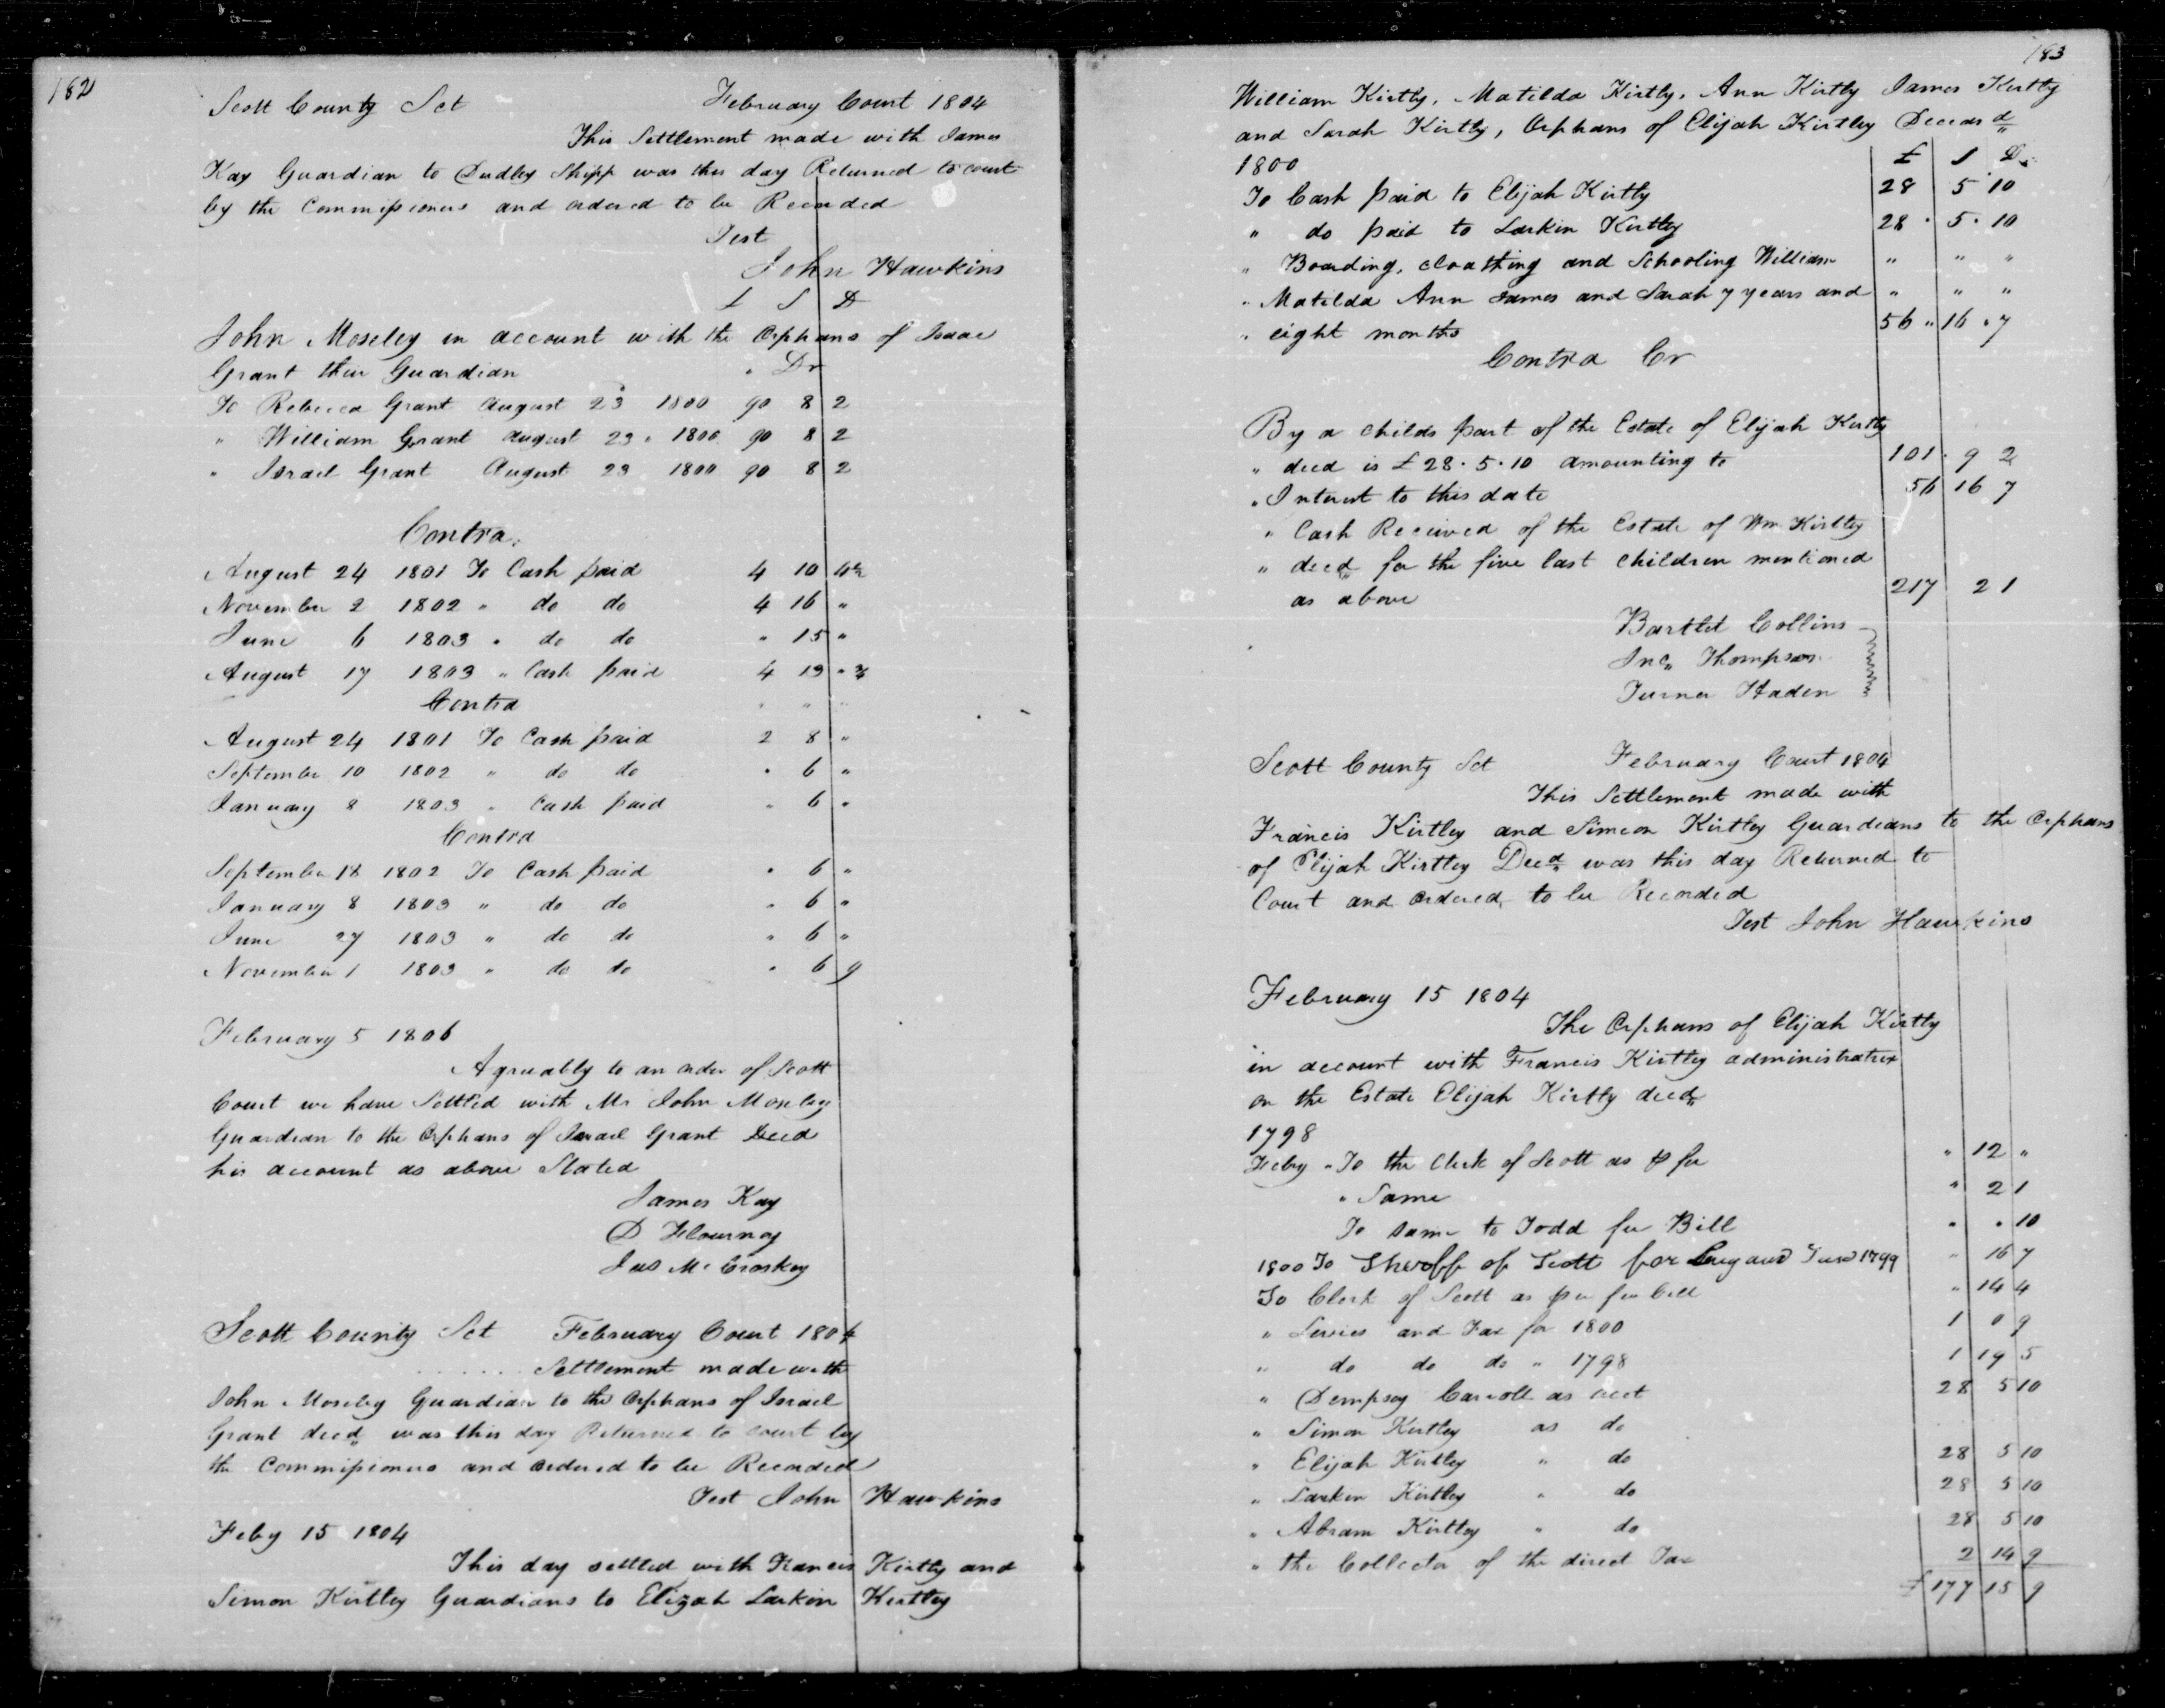 182
Scott County Sct February Court 1804
This Settlement made with James
Kay Guardian to Dudley Shipp was this day Returned to court
by the Commissioners and ordered to be Recorded
Test
John Hawkins
£ S D
John Moseley in account with the Orphans of Isaac
Grant their Guardian Dr
To Rebecca Grant August 23 1800 90 8 2
" William Grant August 23 1800 90 8 2
" Israel Grant August 23 1800 90 8 2
Contra
August 24 1801 To Cash paid 4 10
November 2 1802 " do do 4 16 "
June 6 1803 " do do " 15 "
August 17 1803 " Cash paid 4 13
Contra " " "
August 24 1801 To Cash paid 2 8 "
September 10 1802 " do do " 6 "
January 8 1803 " Cash paid " 6 "
Contra
September 18 1802 To Cash paid " 6 "
January 8 1803 " do do " 6 "
June 27 1803 " do do " 6 "
November 1 1803 " do do " 6 9
February 5 1806
Agreeably to an order of Scott
Court we have Settled with Mr John Moseley
Guardian to the Orphans of Israel Grant Deed
his account as above Stated
James Kay
D Flournoy
Jas Mc Croskey
Scott County Sct February Court 1804
Settlement made with
John Moseley Guardian to the Orphans of Israel
Grant deed was this day Returned to court by
the Commissioners and ordered to be Recorded
Test John Hawkins
Feby 15 1804
This day settled with Francis Kirtly and
Simon Kirtley Guardians to Elizah Larkin Kirtley
183
William Kirtly, Matilda Kirtly, Ann Kirtly James Kirtly
and Sarah Kirtly, Orphans of Elijah Kirtley Deceasd
1800 £ S D
To Cash paid to Elijah Kirtly 28 5 10
" do paid to Larkin Kirtley 28 . 5 . 10
" Boarding, cloathing and Schooling William " " "
" Matilda Ann James and Sarah 7 years and " " "
" eight months 56 " 16 " 7
Contra Cr
By a childs part of the Estate of Elijah Kirtly
" deed is £ 28 . 5 . 10 amounting to 101 . 9 2
" Interest to this date 56 16 7
" Cash Received of the Estate of Wm Kirtley
" deed for the five last children mentioned
as above 217 2 1
Bartlet Collins
Jno Thompson
Turner Haden
Scott County Sct February Court 1804
This Settlement made with
Francis Kirtley and Simeon Kirtley Guardians to the Orphans
of Elijah Kirtley Deed was this day Returned to
Court and ordered to be Recorded
Test John Hawkins
February 15 1804
The Orphans of Elijah Kirtly
in account with Francis Kirtley administratrix
on the Estate Elijah Kirtly deed
1798
Feby " To the Clerk of Scott as fee " 12 "
" Same " 2 1
To same to Todd fee Bill " " 10
1800 To Sheroff of Scott for 1799 " 16 7
To Clerk of Scott as per fee bill " 14 4
" Levies and Tax for 1800 1 0 9
" do do do " 1798 1 19 5
" Dempsey Carroll as acct 28 5 10
" Simon Kirtley as do
" Elijah Kirtley " do 28 5 10
" Larkin Kirtley " do 28 5 10
" Abram Kirtley " do 28 5 10
" the Collector of the direct Tax 2 14 9
£ 177 15 9